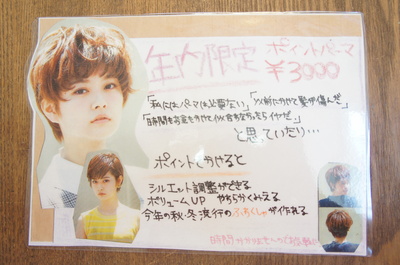 年内限定 ポイントパーマ
¥3000
「私にはパーマは必要ない」「以前にかけて髪が傷んだ」
「時間もお金もかけて似合わなかったらイヤだ」
と思っていたり…
ポイントでかけると
シルエット調整ができる
ボリュームUP やわらかくみえる
今年の秋・冬流行のふちくしゃが作れる